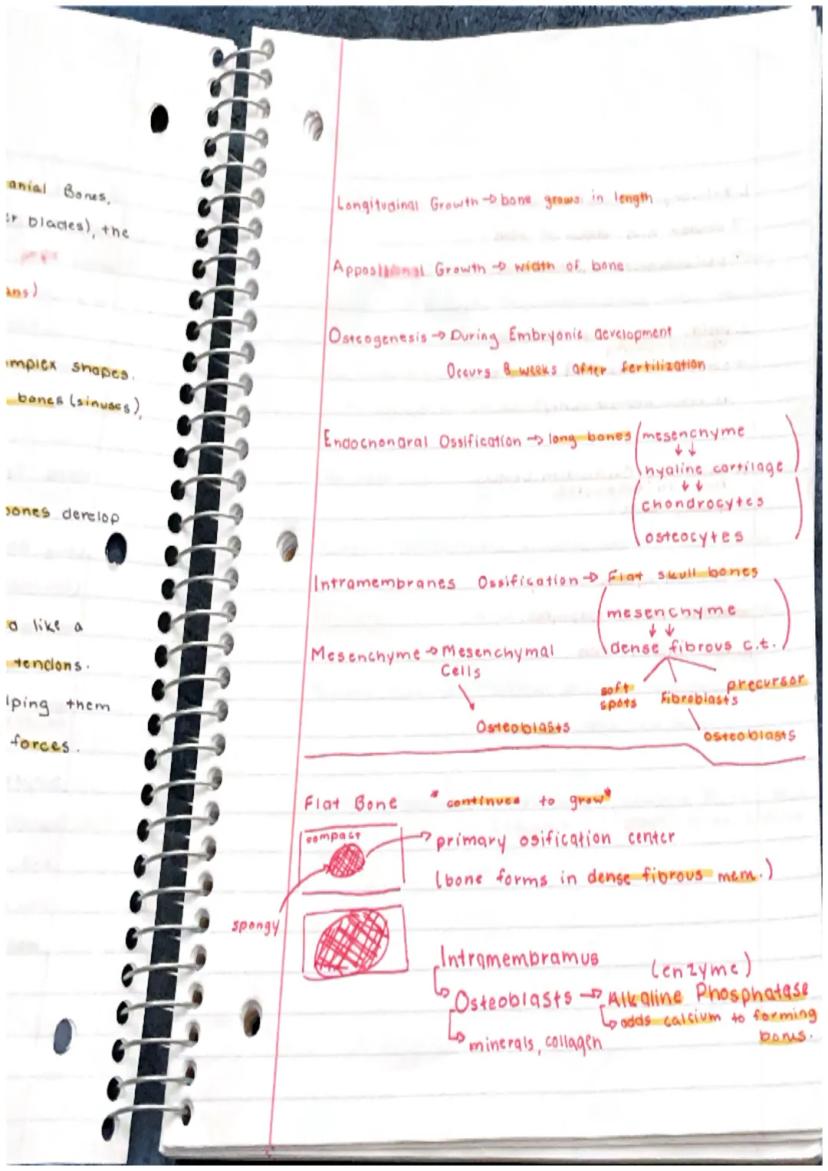 anial Bones,
er blades), the
ans)
mplex shapes.
bones (sinuses),
bones develop
d like a
tendons.
lping them
forces.
Longitudinal Growth → bone grows in length
Appositional Growth → width of bone
Osteogenesis → During Embryonic development
Occurs 8 weeks after fertilization
Endochondral Ossification → long bones (mesenchyme
↓↓
hyaline cartilage)
↓↓
(chondrocytes
osteocytes)
Intramembranes Ossification → Flat skull bones
(mesenchyme
↓↓
dense fibrous c.t.)
soft spots
fibroblasts
precursor
osteoblasts
Mesenchyme → Mesenchymal
Cells
Osteoblasts
Flat Bone "continued to grow"
compact
→ primary osification center
(bone forms in dense fibrous mem.)
spongy
Intramembramus
(enzyme)
↳ Osteoblasts → Alkaline Phosphatase
↳ adds calcium to forming
bones.
↳ minerals, collagen